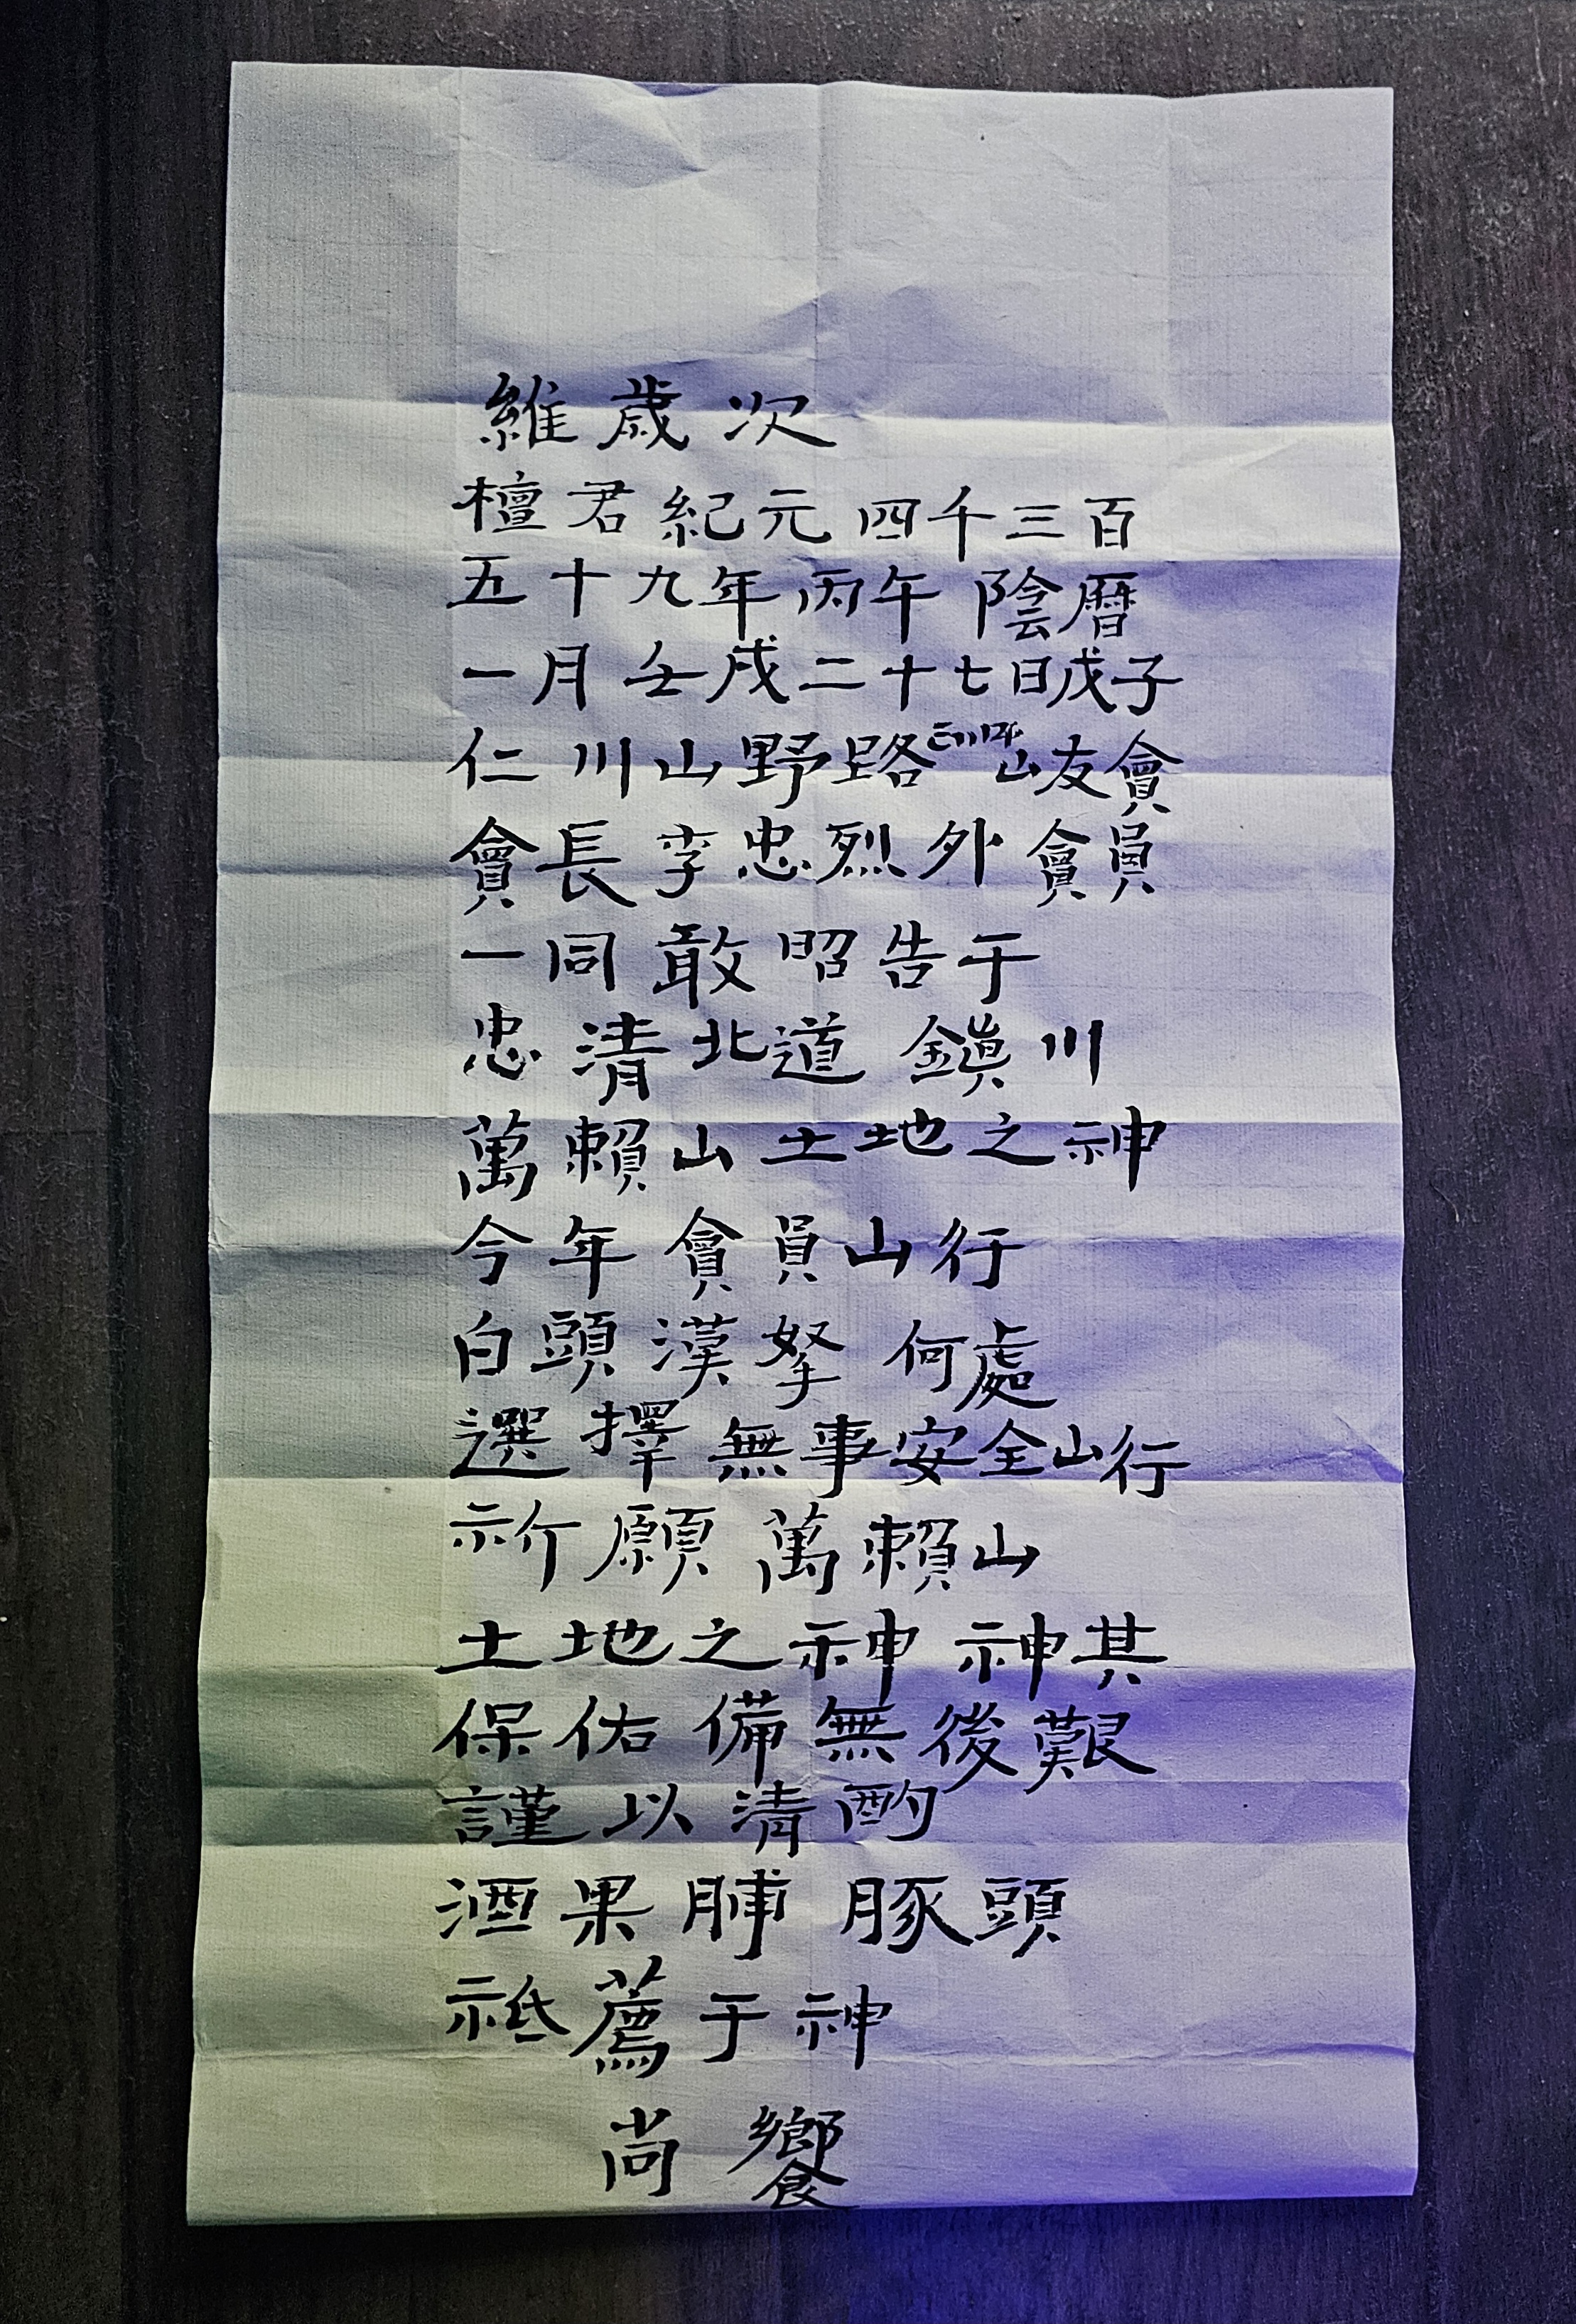 維歲次
檀君紀元四千三百
五十九年丙午陰曆
一月壬戌二十七日戊子
仁川山野路山友會
會長李忠烈外會員
一同敢昭告于
忠清北道鎭川
萬賴山土地之神
今年會員山行
白頭漢拏何處
選擇無事安全山行
祈願萬賴山
土地之神神其
保佑備無後艱
謹以清酌
酒果脯豚頭
祗薦于神
尚饗